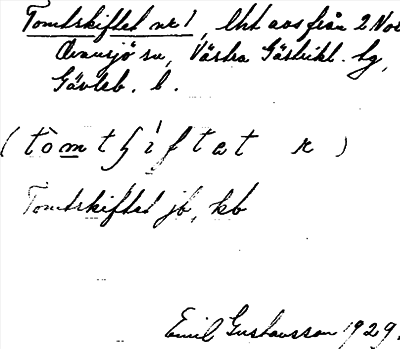 Tomtskiftet nr 1, lht avs från 2 Nor
Ovansjö sn, Västra Gästrikl. tg,
Gävleb. l.
(tòmtʃìftet r)
Tomtskiftet jb, kb
Emil Gustavsson 1929.